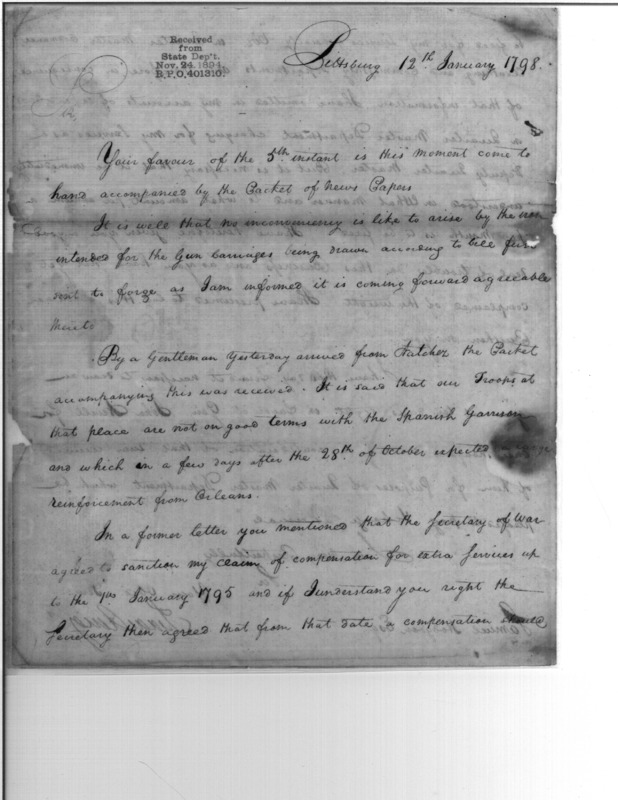 Received
from
State Dep't.
Nov. 24. 1894.
B.P.O. 401310.
Pittsburg 12th January 1798.
Sir,
Your favour of the 5th instant is this moment come to
hand accompanied by the Packet of News Papers
It is well that no inconveniency is like to arise by the iron
intended for the Gun Carriages being drawn according to bill first
sent to forge as I am informed it is coming forward agreeable
thereto
By a Gentleman Yesterday arrived from Natchez the Packet
accompanying this was received. It is said that our Troops at
that place are not on good terms with the Spanish Garrison
and which in a few days after the 28th of October expected a large
reinforcement from Orleans.
In a former letter you mentioned that the Secretary of War
agreed to sanction my claim of compensation for extra Services up
to the 1st January 1795 and if I understand you right the
Secretary then agreed that from that date a compensation should